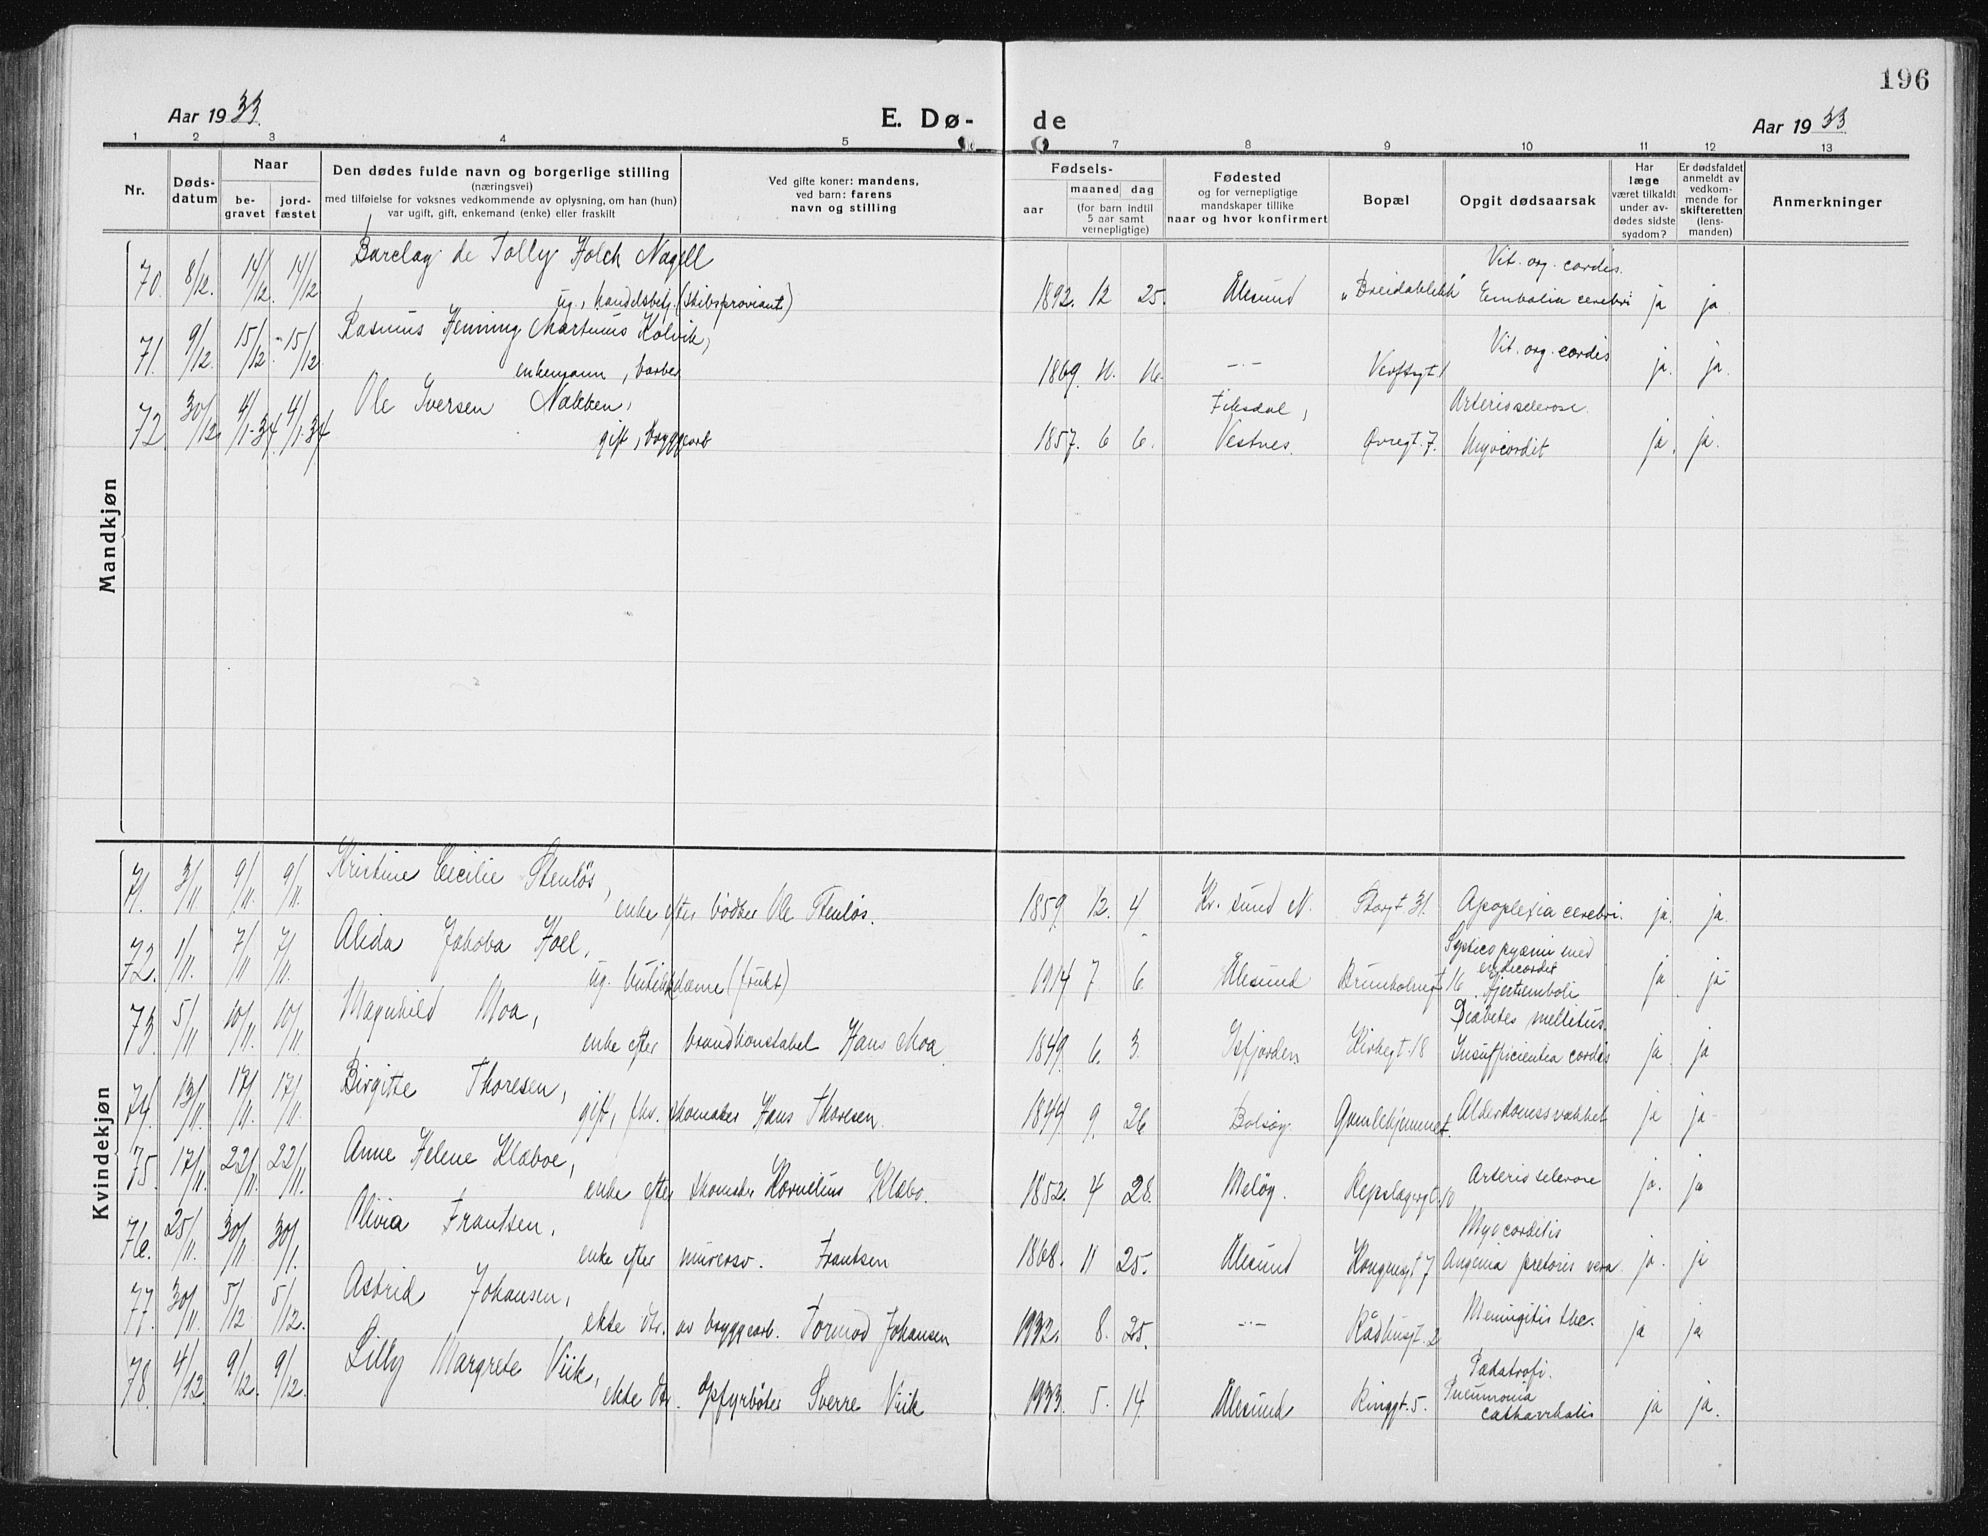 196
Aar 1933.
E. Dø-
de
Aar 1933
1 2 3 4 5 7 8 9 10 11 12 13
Nr.
Døds-
datum
Naar
be-
gravet
jord-
fæstet
Den dødes fulde navn og borgerlige stilling
(næringsvei)
med tilføielse for voksnes vedkommende av oplysning, om han (hun)
var ugift, gift, enkemand (enke) eller fraskilt
Ved gifte koner: mandens,
ved barn: farens
navn og stilling
Fødsels-
aar
maaned dag
(for barn indtil
5 aar samt
vernepligtige)
Fødested
og for vernepligtige
mandskaper tillike
naar og hvor konfirmert
Bopæl
Opgit dødsaarsak
Har
læge
været tilkaldt
under av-
dødes sidste
sygdom?
Er dødsfaldet
anmeldt av
vedkom-
mende for
skifteretten
(lens-
manden)
Anmerkninger
Mandkjøn
70. 8/12. 14/12. 14/12 Barclay de Tolly Holck Nagell
ug., handelsbetj. (skibsproviant) 1892. 12 25. Ålesund "Breidablikk" Vit. org. cordis.
Embolia cerebri ja ja
71. 9/12. 15/12. 15/12. Rasmus Henning Martinus Kolvik,
enkemann, barber 1869. 11. 16. -"- Verftsgt 1 Vit. org. cordis ja. ja.
72 30/12. 4/1-34. 4/1-34 Ole Iversen Nakken,
gift, bryggearb 1857. 6 6. Fiksdal,
Vestnes. Øvregt. 7. Arteriosclerose.
Myocardit ja. ja.
Kvindekjøn
71. 3/11 9/11. 9/11. Kristine Cecilie Stenløs,
enke efter bødker Ole Stenløs. 1859. 12. 4 Kr. sund N. Storgt. 31. Apoplexia cerebri. ja. ja.
72. 1/11. 7/11 7/11. Alida Jakoba Hoel,
ug. butikkdame (frukt) 1914 7 6 Ålesund Brunholmgt 16 Septico pyæmi med
endicordit
Hjertemboli ja ja
73. 5/11 10/11. 10/11. Magnhild Moa,
enke efter brandkonstabel Hans Moa 1849. 6. 3. Isfjorden Kirkegt. 18 Diabetes mellitus.
Insufficientia cordis ja ja
74. 13/11. 17/11. 17/11. Birgitte Thoresen,
gift, fhv. skomaker Hans Thoresen. 1844. 9. 26 Bolsøy Gamlehjemmet. Alderdomssvakhet ja ja
75. 17/11. 22/11. 22/11. Anne Helene Klæboe,
enke efter skomaker Kornelius Klæbo. 1852. 4 28. Meløy. Repslagergt. 10 Arteriosclerose ja. ja
76. 25/11. 30/11 30/1. Olivia Frantsen,
enke efter murersv. Frantsen 1868. 11 25. Ålesund Kongensgt 7 Myocarditis
Angenia pectoris vera ja. ja
77. 30/11. 5/12 5/12. Astrid Johansen,
ekte dtr. av bryggearb. Tormod Johansen 1932. 8. 25. -"- Rådhusgt. 2 Meningitis tbc. ja ja
78. 4/12 9/12. 9/12. Lilly Margrete Viik,
ekte dtr. Opfyrbøter Sverre Viik 1933. 5. 14. Ålesund Ringgt. 5. Pædatrofi.
Pneumonia
catharrhalis ja ja.